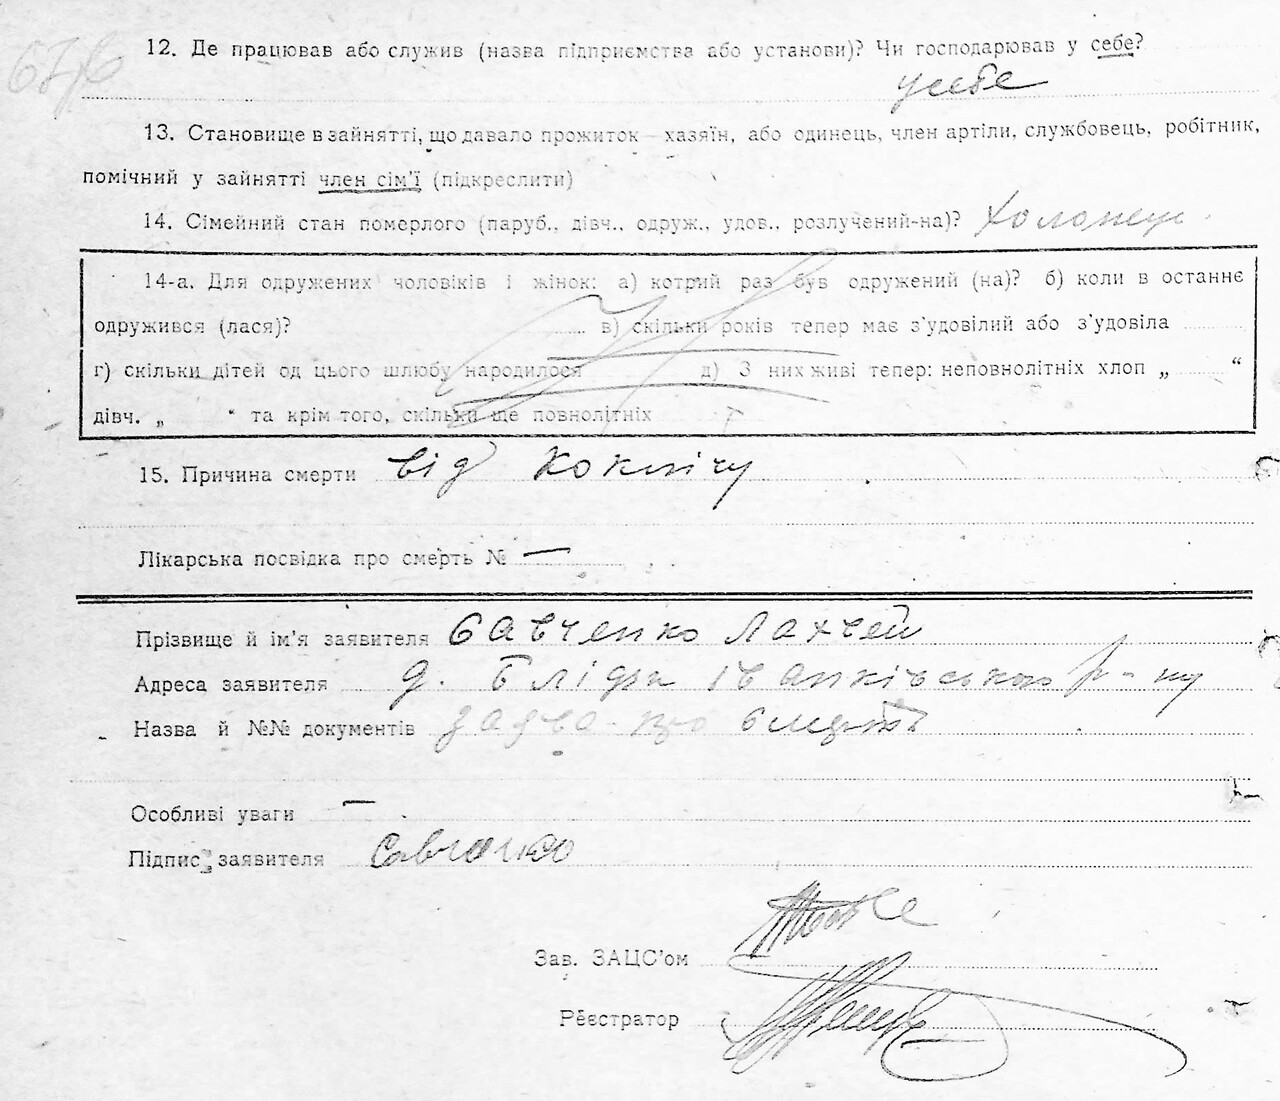 12. Де працював або служив (назва підприємства або установи)? Чи господарював у себе?
у себе
13. Становище в зайнятті, що давало прожиток — хазяїн, або одинець, член артіли, службовець, робітник,
помічний у зайнятті член сім'ї (підкреслити)
14. Сімейний стан померлого (паруб., дівч., одруж., удов., розлучений-на)? Холопець
14-а. Для одружених чоловіків і жінок: а) котрий раз був одружений (на)? б) коли в останнє
одружився (лася)? в) скільки років тепер має з'удовілий або з'удовіла
г) скільки дітей од цього шлюбу народилося д) З них живі тепер: неповнолітніх хлоп „ “
дівч. „ “ та крім того, скільки ще повнолітніх
15. Причина смерти від коклюшу
Лікарська посвідка про смерть № —
Прізвище й ім'я заявителя Савченко
Адреса заявителя Іванківського р-ну
Назва й №№ документів заява про смерть
Особливі уваги —
Підпис заявителя Савченко
Зав. ЗАЦС'ом
Реєстратор